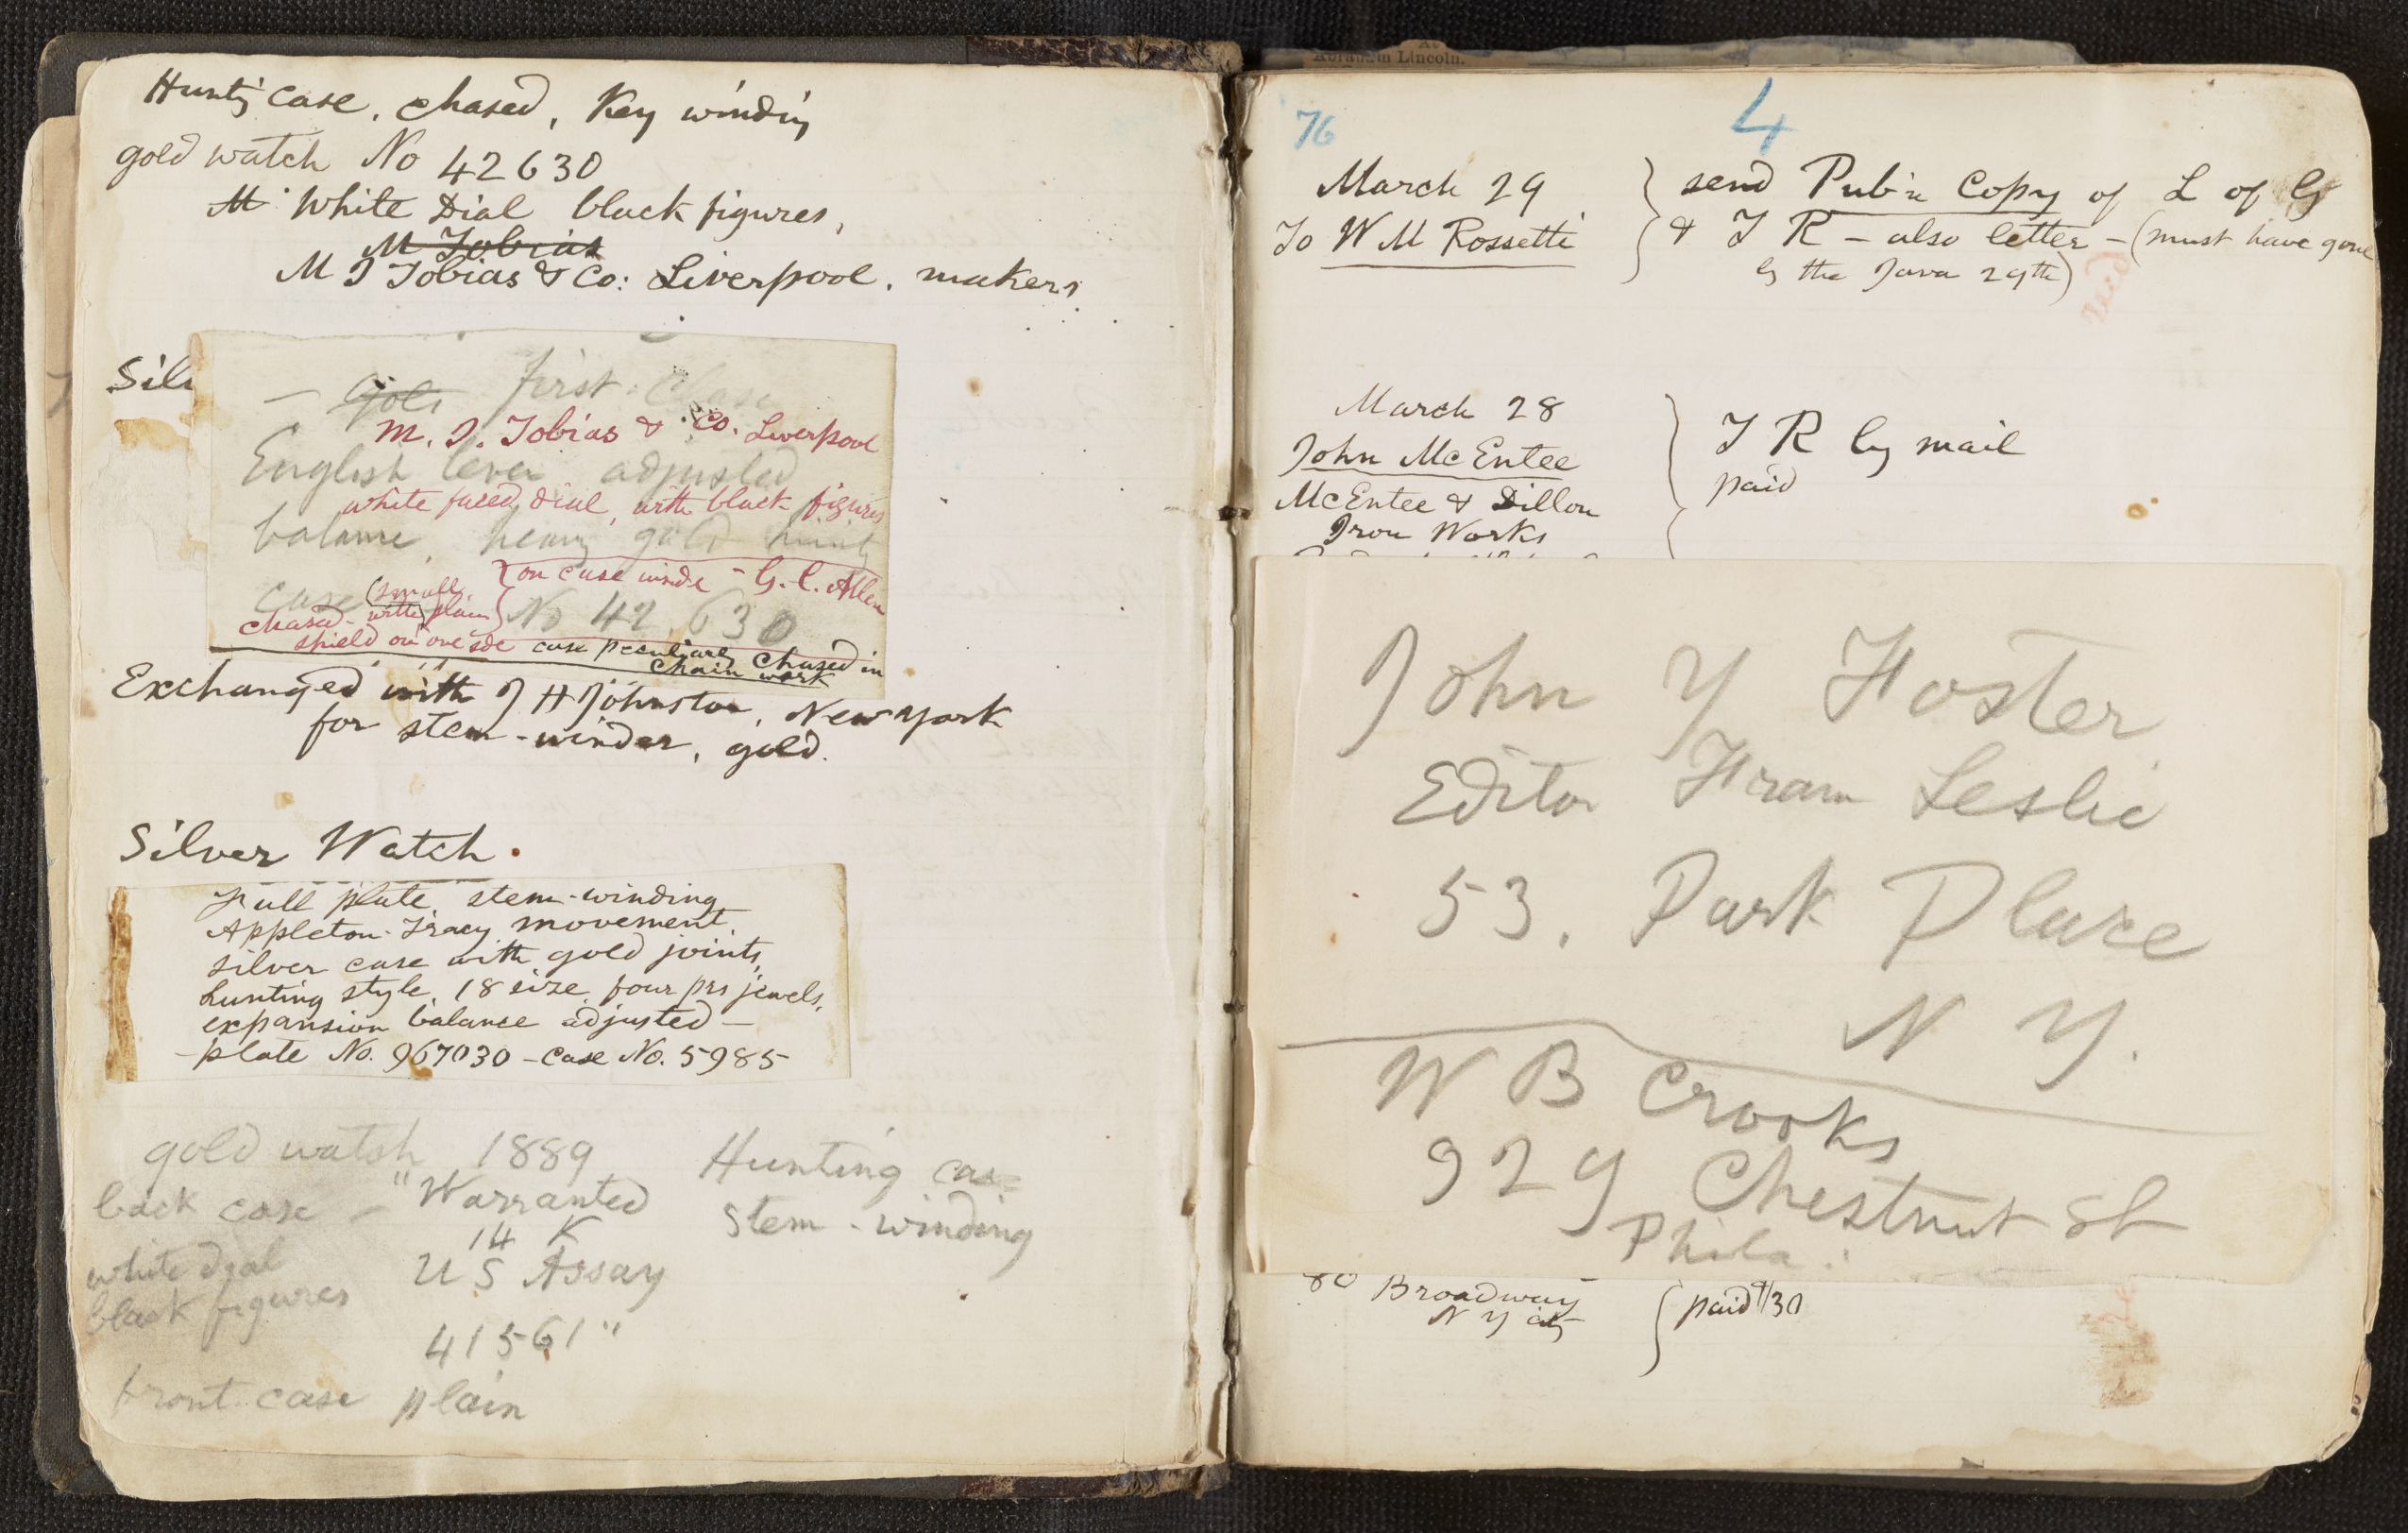 Huntg case, chased, Key windig
gold watch No 42630
M White Dial black figures,
M Tobias
M I Tobias & Co: Liverpool. makers
Silv
— gold first-class
M. I. Tobias & Co. Liverpool
English lever adjusted
white faced dial, with black figures
balance, heavy gold huntg
on case inside - G. C. Allen
case (small
chased - with plain No 42,630
shield on one side case peculiarly chased in
chain work
Exchanged with J H Johnston, New York
for stem-winder, gold.
Silver Watch.
Full plate, stem-winding
Appleton-Tracy movement,
silver case with gold joints,
hunting style, 18 size, four prs jewels,
expansion balance adjusted —
— plate No. 967030 – case No. 5985
gold watch 1889 Hunting case
back case — "Warranted stem-winding
14 K
white dial U S Assay
black figures
41561"
front case plain
Abraham Lincoln.
76 4
March 29 send Pub'n Copy of L of G
To W M Rossetti & T R – also letter – (must have gone
by the Java 29th)
paid
March 28
John McEntee T R by mail
McEntee & Dillon paid
Iron Works
John Y Foster
Editor Fram Leslie
53. Park Place
N Y.
W B Crooks
929 Chestnut St
Phila.
80 Broadway paid $30
N Y city